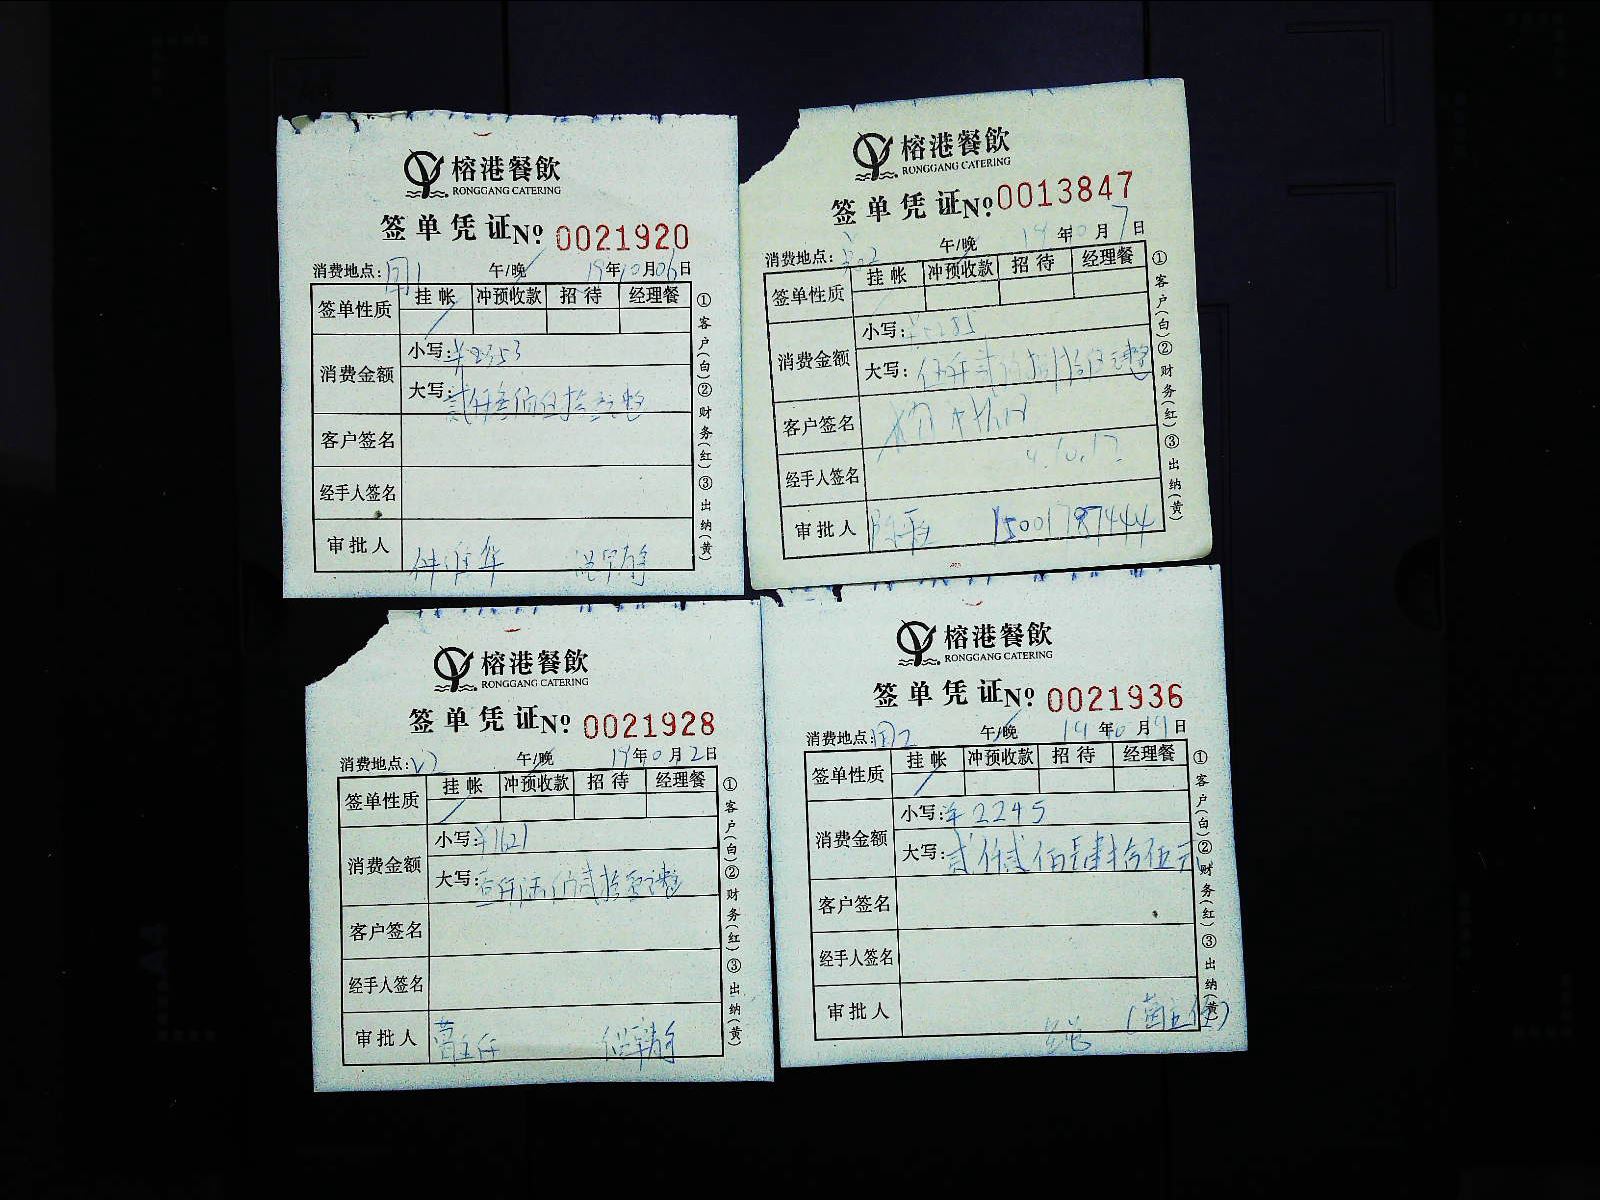 榕港餐飲
RONGGANG CATERING
签单凭证 № 0021920
消费地点: 午/晚 19年10月06日
签单性质 挂帐 冲预收款 招待 经理餐
消费金额 小写:¥2353
大写:贰仟叁佰伍拾叁元整
客户签名
经手人签名
审批人
①客户(白)②财务(红)③出纳(黄)
榕港餐飲
RONGGANG CATERING
签单凭证 № 0013847
消费地点: 午/晚 年 月7日
签单性质 挂帐 冲预收款 招待 经理餐
消费金额 小写:¥5285
大写:伍仟贰佰捌拾伍元整
客户签名
经手人签名
审批人 15001787444
①客户(白)②财务(红)③出纳(黄)
榕港餐飲
RONGGANG CATERING
签单凭证 № 0021928
消费地点: 午/晚 年 月2日
签单性质 挂帐 冲预收款 招待 经理餐
消费金额 小写:¥1621
大写:壹仟陆佰贰拾壹元整
客户签名
经手人签名
审批人 主任
①客户(白)②财务(红)③出纳(黄)
榕港餐飲
RONGGANG CATERING
签单凭证 № 0021936
消费地点: 午/晚 年 月 日
签单性质 挂帐 冲预收款 招待 经理餐
消费金额 小写:¥2245
大写:贰仟贰佰肆拾伍元
客户签名
经手人签名
审批人
①客户(白)②财务(红)③出纳(黄)